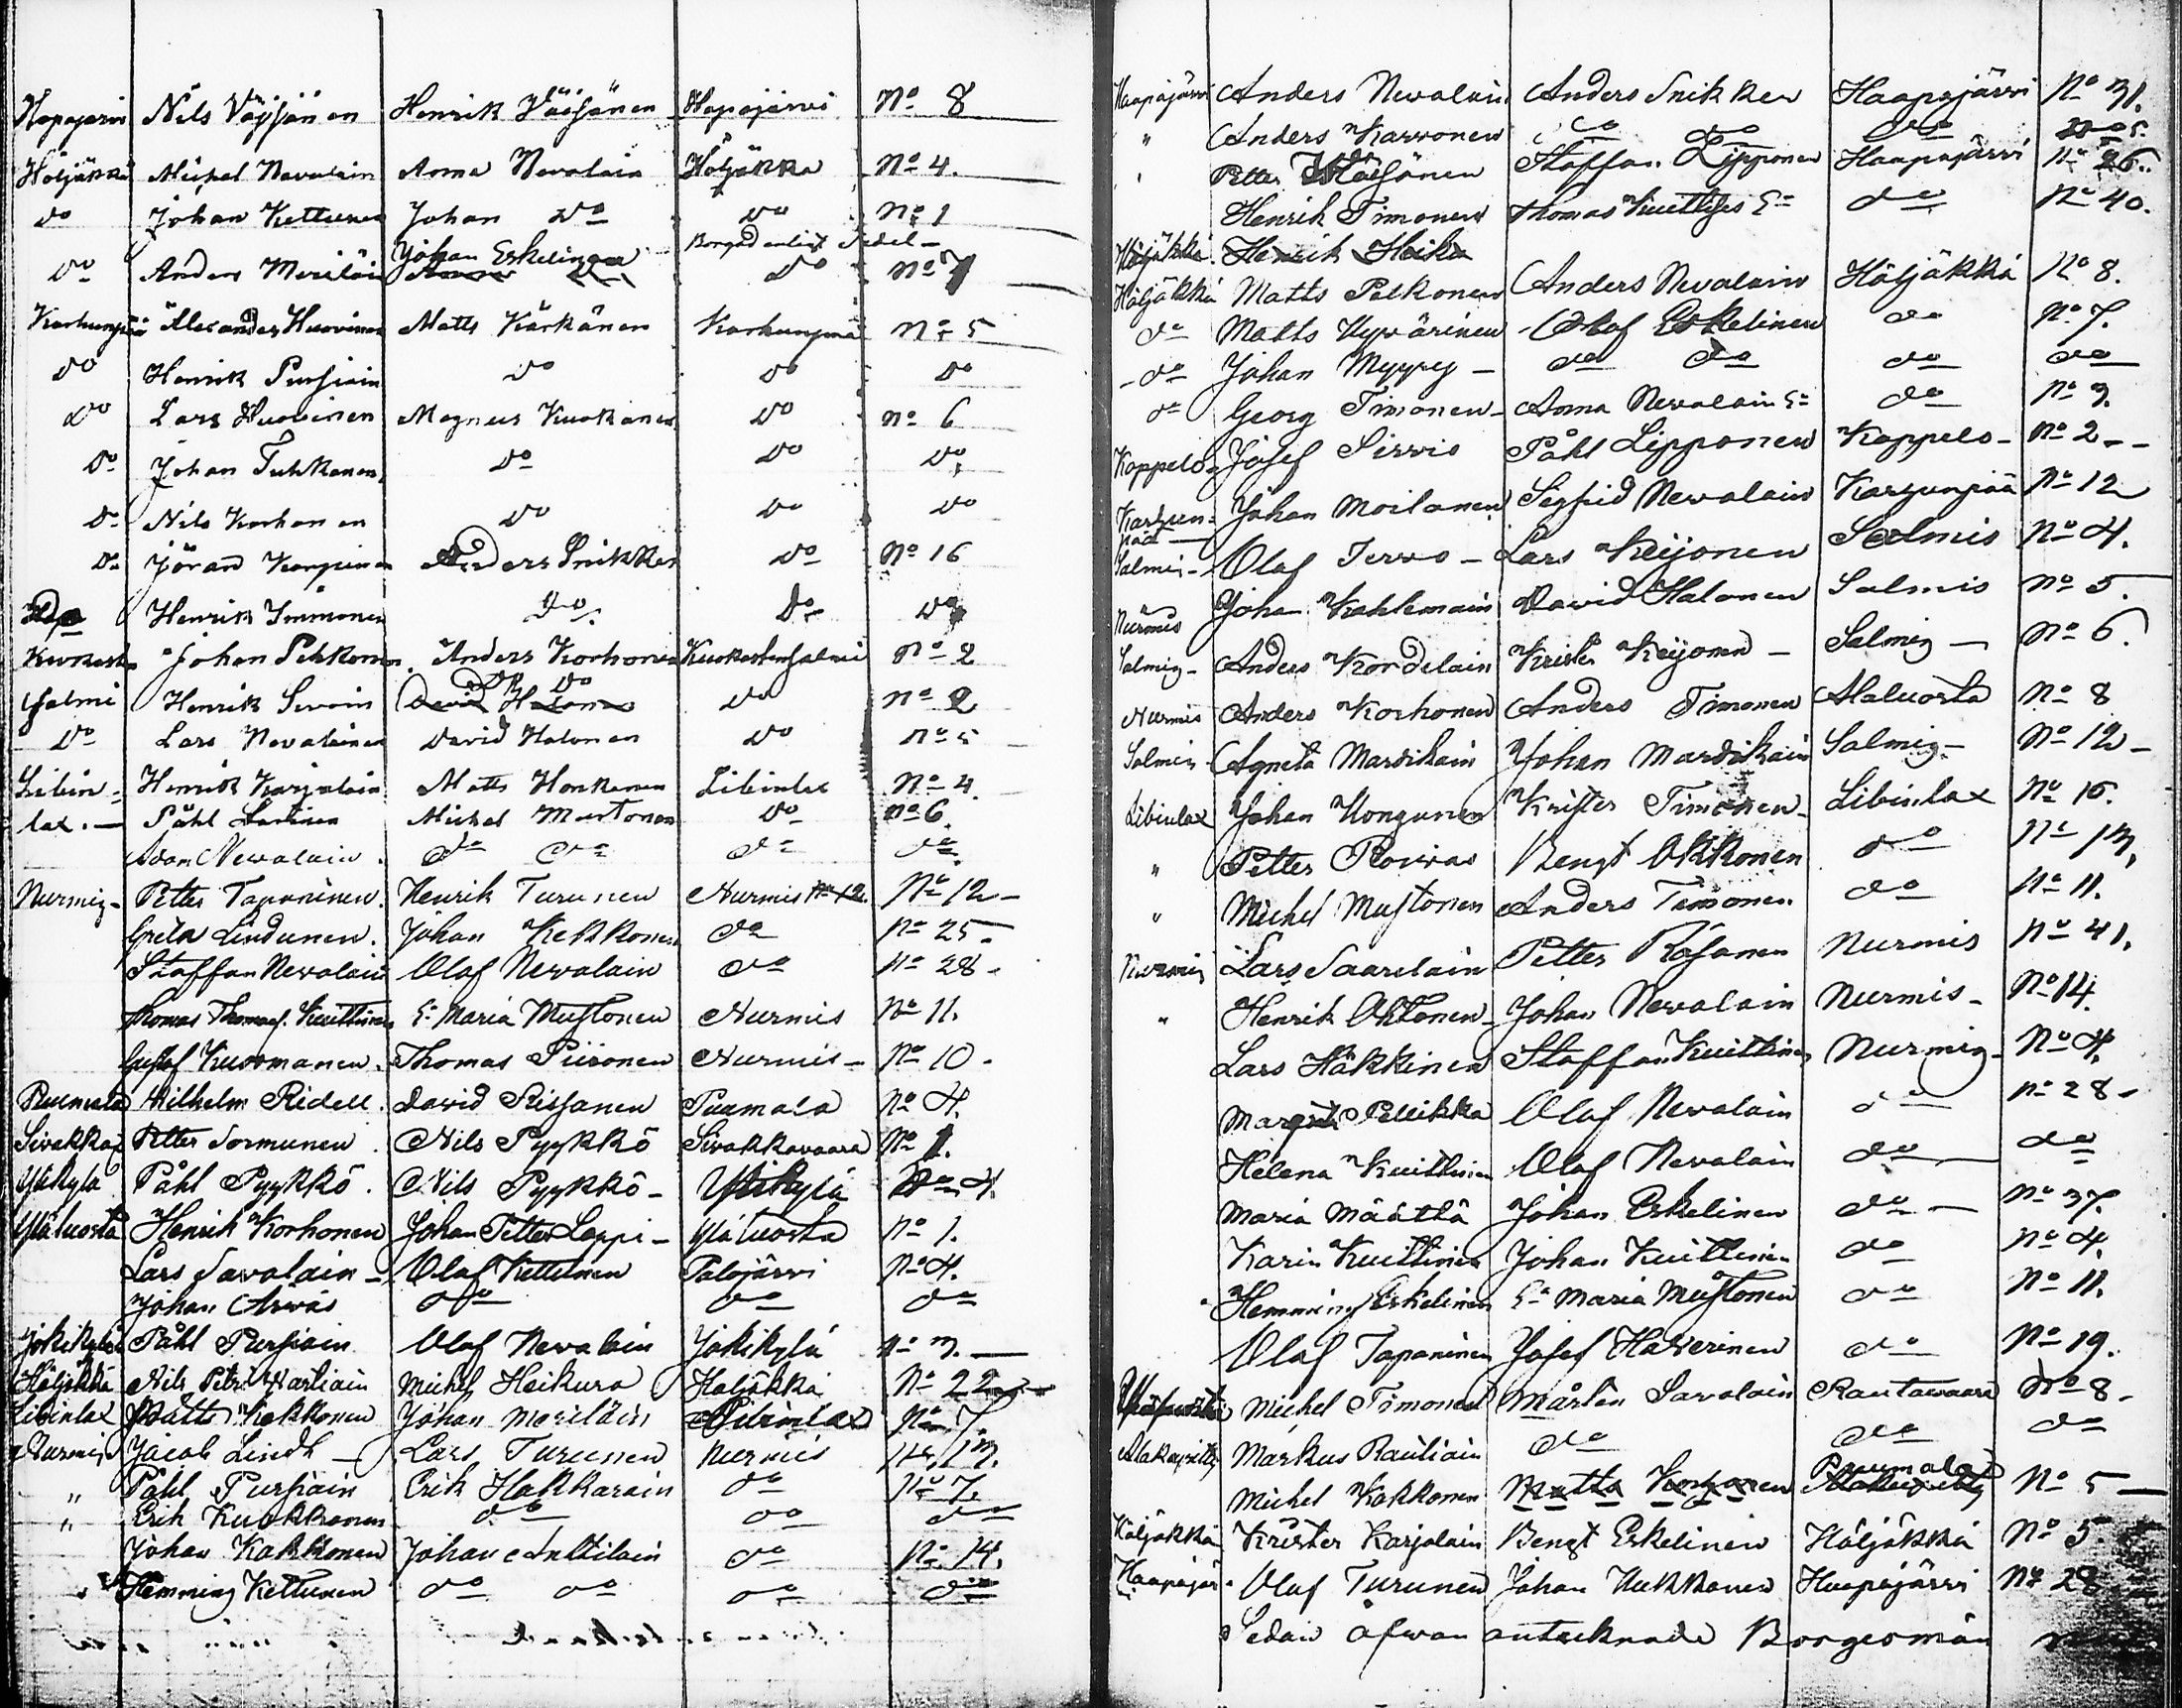 Hapajarvi Nils Väÿsänen Henrik Väisänen Hapajärvi No 8
Höljäkkä Michel Nevalain Anna Nevalain Höljäkkä No 4.
do Johan Kettunen Johan do do No 1
Johan Eskelinen Borgad enligt Sedel
do Anders Meriläin do No 7
Karhunpää Alexander Huovinen Matts Kärkänen Karhunpää No 5
do Henrik Pursiain do do do
do Lars Huovinen Magnus Kuokanen do No 6
do Johan Tuhkanen do do do
do Nils Korhonen do do do
do Jöran Karpinen Anders Snikker do No 16
do Henrik Immonen do do do
Kuokasten Johan Pehkonen Anders Korhonen Kuokastensalmi No 2
salmi Henrik Sivoin do do do No 2
do Lars Nevalainen David Halonen do No 5
Libin- Henrik Karjalain Matts Honkanen Libinlax No 4
lax. Påhl Michel Mustonen do No 6
Adam Nevalain do do do do
Nurmis Petter Tapaninen Henrik Turunen Nurmis No 12 No 12
Greta Lindunen Johan Kekkonen do No 25
Staffan Nevalain Olof Nevalain do No 28
Thomas Thomass. Kuittinen Ea Maria Mustonen Nurmis No 11.
Gustaf Kuosmanen Thomas Piironen Nurmis No 10
Puumala Wilhelm Ridell David Rissanen Puumala No 4.
Sivakka Petter Sormunen Nils Pyykkö Sivakkavaara No 1.
Ylikylä Påhl Pyykkö Nils Pyykkö Ylikylä No 4.
Yläluosta Henrik Korhonen Johan Petter Lappi Yläluosta No 1.
Lars Savolain Olof Kettunen Palojärvi No 4.
Johan Arvas do do do
Jokikylä Påhl Pursiain Olof Nevalain Jokikylä No 3.
Höljäkkä Nils Petri Wartiain Michel Heikura Höljäkkä No 22
Libinlax Matts Kekkonen Johan Meriläin Libinlax No 7.
Nurmis Jacob Lindh Lars Turunen Nurmis No 13.
" Påhl Pursiain Erik Hakkarain do No 7.
" Erik Kuokkanen do do do
Johan Kakkonen Johan Anttilain do No 14.
" Hemming Kettunen do do do do
Haapajärvi Anders Nevalain Anders Snikker Haapajärvi No 31.
" Anders Karvonen do do do No 5.
" Petter Väisänen Staffan Lipponen Haapajärvi No 26.
Henrik Timonen Thomas Kuittises Ea do No 40.
Höljäkkä Henrik Heika
Höljäkkä Matts Pelkonen Anders Nevalain Höljäkkä No 8.
do Matts Hyvärinen Olof Eskelinen do No 7.
do Johan Myyry do do do do
do Georg Timonen Anna Nevalain Ea do No 9.
Koppelo Josef Sirvio Påhl Lipponen Koppelo No 2
Karhun- Johan Moilanen Sigfrid Nevalain Karhunpää No 12
pää
Salmis Olof Tervo Lars Keijonen Salmis No 4.
Nurmis Johan Kahlemain David Halonen Salmis No 5.
Salmis Anders Kordelain Krister Keijonen Salmis No 6.
Nurmis Anders Korhonen Anders Timonen Alaluosta No 8
Salmis Agneta Mardikain Johan Mardikain Salmis No 12
Libinlax Johan Hongunen Krister Timonen Libinlax No 16.
" Petter Rouvas Bengt Okkonen do No 13.
" Michel Mustonen Anders Timonen do No 11.
Nurmis Lars Saarelain Petter Räsänen Nurmis No 41.
" Henrik Oktonen Johan Nevalain Nurmis No 14.
Lars Häkkinen Staffan Kuittinen Nurmis No 4.
Margeta Pellikka Olof Nevalain do No 28
Helena Kuittinen Olof Nevalain do do
Maria Määttä Johan Eskelinen do No 37.
Karin Kuittinen Johan Kuittinen do No 4.
Hemming Eskelinen Ea Maria Mustonen do No 11.
Olof Tapaninen Josef Haverinen do No 19.
Michel Timonen Mårten Savolain Rautavaara No 8.
Alakeyritty Markus Rautiain do do do
Puumala
Michel Kakkonen Matts Korhonen Alakeyritty No 5
Höljäkkä Krister Karjalain Bengt Eskelinen Höljäkkä No 5
Haapajär. Olof Turunen Johan Hukkanen Haapajärvi No 28
Sedan ofwan antecknade Borgesmän